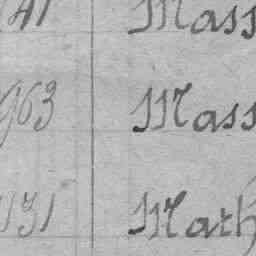 141 Mass
963 Mass
1131 Math